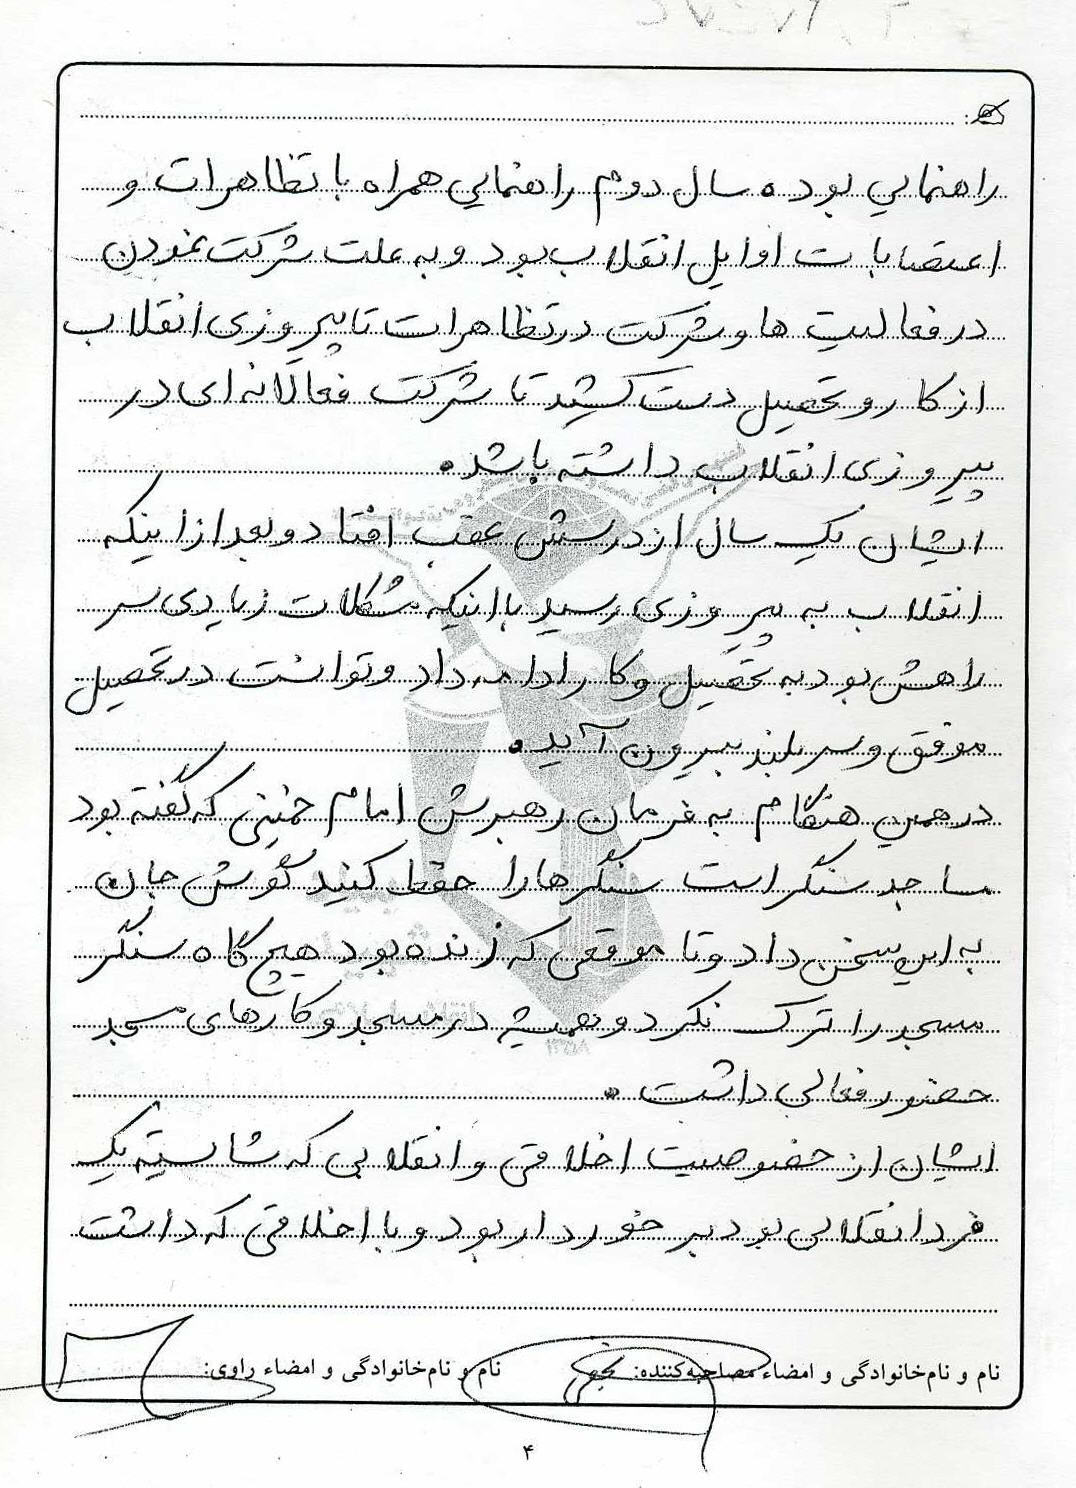 راهنمایی بوده سال دوم راهنمایی همراه با تظاهرات و
اعتضابات اوایل انقلاب بود و به علت شرکت نمودن
در فعالیت ها و شرکت در تظاهرات تا پیروزی انقلاب
از کار و تحصیل دست کشید تا شرکت فعالانه ای در
پیروزی انقلاب داشته باشد.
ایشان یک سال از درسش عقب افتاد و بعد از اینکه
انقلاب به پیروزی رسید با اینکه مشکلات زیادی سر
راهش بود به تحصیل و کار ادامه داد و توانست در تحصیل
موفق و سربلند بیرون آید.
در همین هنگام به فرمان رهبرش امام خمینی که گفته بود
مساجد سنگر است سنگرها را حفظ کنید گوش جان
به این سخن داد و تا موقعی که زنده بود هیچ گاه سنگر
مسجد را ترک نکرد و همیشه در مسجد و کارهای مسجد
حضور فعالی داشت.
ایشان از خصوصیت اخلاقی و انقلابی که شایسته یک
فرد انقلابی بود بر خوردار بود و با اخلاقی که داشت
نام و نام‌خانوادگی و امضاء مصاحبه‌کننده:
نام و نام‌خانوادگی و امضاء راوی:
۴